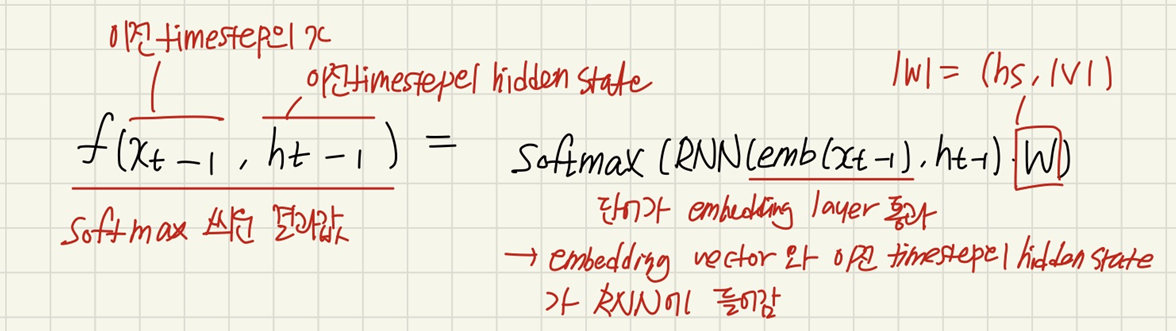 이전 timestep의 x
이전 timestep의 hidden state
|W| = (hs, |V|)
f(xt-1, ht-1) = softmax(RNN(emb(xt-1), ht-1)·W)
softmax 씌운 결과값
단어가 embedding layer 통과
→ embedding vector와 이전 timestep의 hidden state
가 RNN에 들어감